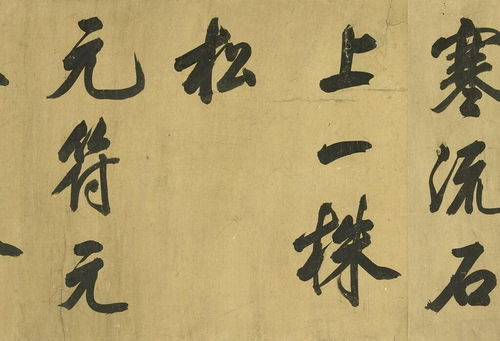 寒流石
上一株
松
元符元